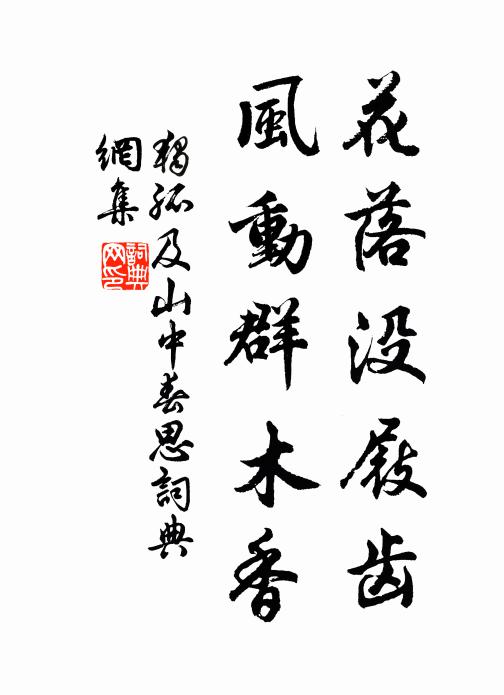 花落没屐齿
風動群木香
獨孤及山中春思詞典
網集
詞典网印